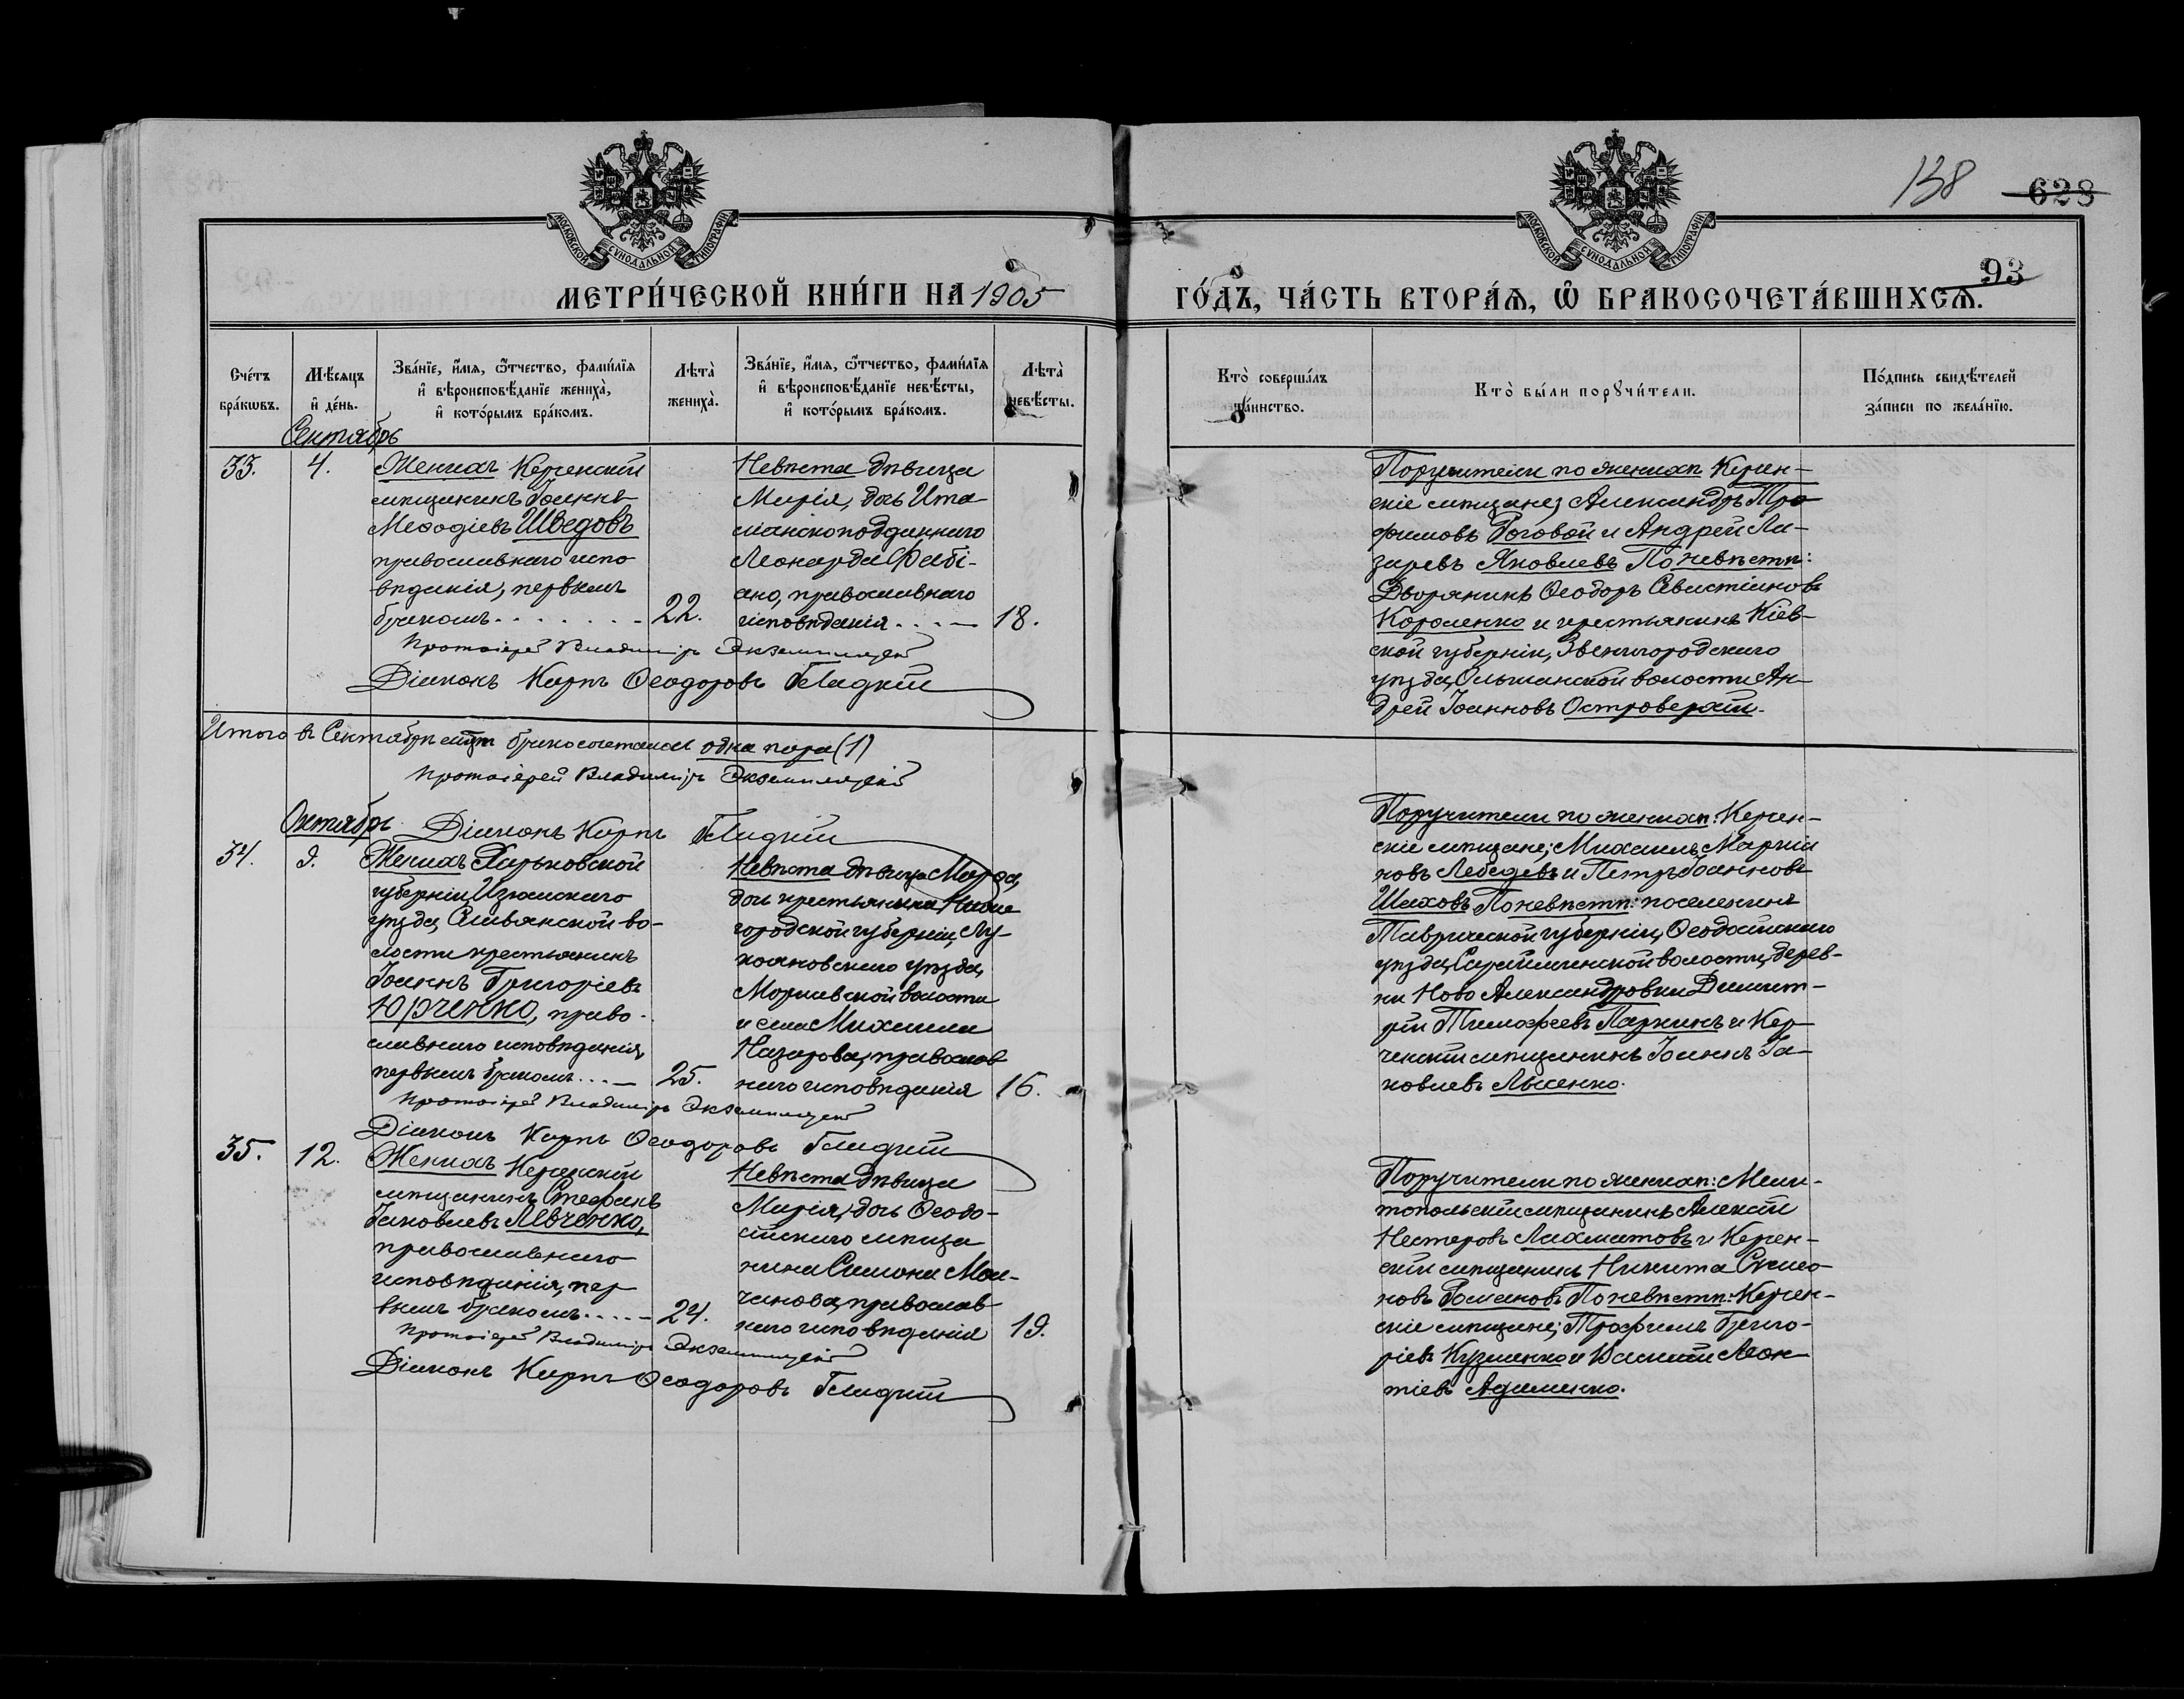 138 628
93
МОСКОВСКОЙ СѴНОДАЛЬНОЙ ТИПОГРАФІИ
МОСКОВСКОЙ СѴНОДАЛЬНОЙ ТИПОГРАФІИ
МЕТРИ́ЧЕСКОЙ КНИ́ГИ НА 1905 ГО́ДЪ, ЧА́СТЬ ВТОРА́Ѧ, Ѡ҆ БРАКОСОЧЕТА́ВШИХСѦ.
Сче́тъ бра́кѡвъ.
Мѣ́сѧцъ и҆ де́нь.
Зва́нїе, и҆́мѧ, ѻ҆́тчество, фами́лїѧ и҆ вѣроисповѣ́данїе жениха̀, и҆ кото́рымъ бра́комъ.
Лѣта̀ жениха̀.
Зва́нїе, и҆́мѧ, ѻ҆́тчество, фами́лїѧ и҆ вѣроисповѣ́данїе невѣ́сты, и҆ кото́рымъ бра́комъ.
Лѣта̀ невѣ́сты.
Кто̀ соверша́лъ та́инство.
Кто̀ бы́ли порꙋчи́тели.
По́дпись свидѣ́телей за́писи по жела́нїю.
Сентябрь
33.
4.
Женихъ Керченскій
мѣщанинъ Іоаннъ
Меѳодіевъ Шведовъ
православнаго испо
вѣданія, первымъ
бракомъ
22.
Невѣста дѣвица
Марія, дочь Ита
лианскоподданнаго
Леонарда Фабі-
ано, православнаго
исповѣданія
18.
Протоіерей Владиміръ Экземплярскій
Діаконъ Карпъ Ѳеодоровъ Гладкій
Поручители по женихѣ Керчен-
скіе мѣщане, Александръ Тро
фимовъ Роговой и Андрей Ла-
заревъ Яковлевъ По невѣстѣ:
Дворянинъ Ѳеодоръ Севастіановъ
Короленко и крестьянинъ Кіев-
ской губерніи, Звенигородскаго
уѣзда, Ольшанской волости Ан-
дрей Іоанновъ Островерхій.
Итого въ Сентябрѣ мѣсяцѣ бракосочетались одна пара (1)
Протоіерей Владиміръ Экземплярскій
Діаконъ Карпъ Гладкій
Октябрь
34.
9.
Женихъ Харьковской
губерніи Изюмскаго
уѣзда, Славянской во-
лости крестьянинъ
Іоаннъ Григоріевъ
Юрченко, право-
славнаго исповѣданія,
первымъ бракомъ
25.
Невѣста дѣвица Марѳа,
дочь крестьянина Ниже
городской губерніи, Лу-
кояновскаго уѣзда,
волости
и села Михаила
Назарова, православ
наго исповѣданія
16.
Протоіерей Владиміръ Экземплярскій
Діаконъ Карпъ Ѳеодоровъ Гладкій
Поручители по женихѣ: Керчен-
скіе мѣщане; Михаилъ Маркіа
новъ Лебедевъ и Петръ Іоанновъ
Шаховъ По невѣстѣ: поселенинъ
Таврической губерніи, Ѳеодосійскаго
уѣзда, Сарайминской волости, дерев-
ни Ново Александровки Димит-
рій Тимофеевъ Ларкинъ и Кер
ченскій мѣщанинъ Іоаннъ Іа-
ковлевъ Лысенко.
35.
12.
Женихъ Керченскій
мѣщанинъ Стефанъ
Іаковлевъ Левченко,
православнаго
исповѣданія, пер
вымъ бракомъ
24.
Невѣста дѣвица
Марія, дочь Ѳеодо-
сійскаго мѣща
нина Симона Мол-
чанова, православ
наго исповѣданія
19.
Протоіерей Владиміръ Экземплярскій
Діаконъ Карпъ Ѳеодоровъ Гладкій
Поручители по женихѣ: Мели-
топольскій мѣщанинъ Алексій
Нестеровъ Лахматовъ и Керчен-
скій мѣщанинъ Никита Симео
новъ Романовъ По невѣстѣ: Керчен-
скіе мѣщане; Трофимъ Григо-
ріевъ Кузменко и Василій Леон
тіевъ Адаменко.